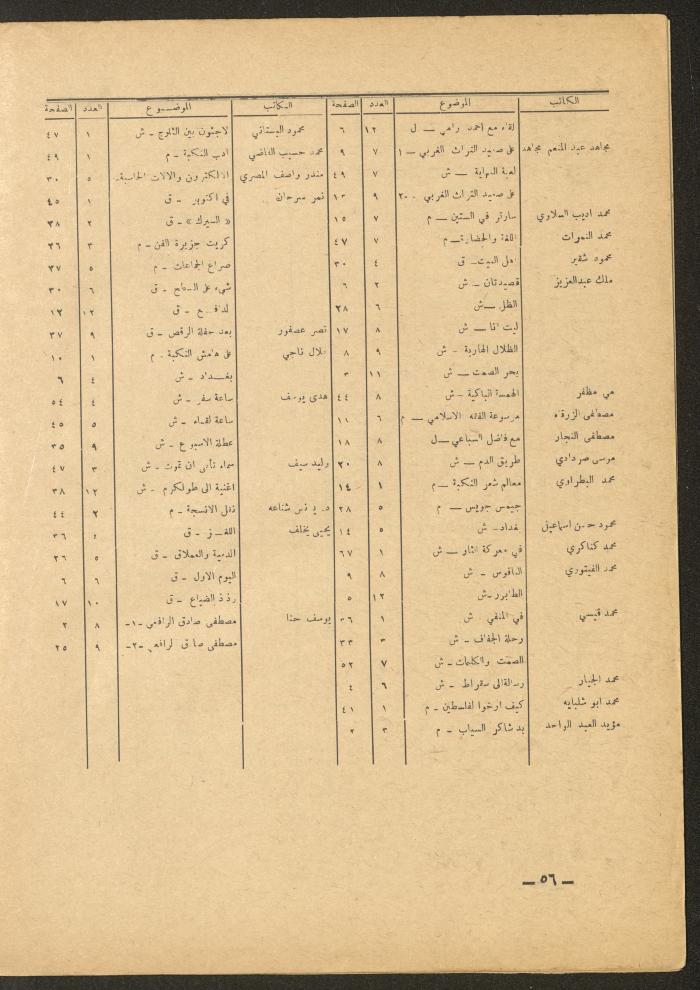 الكاتب الموضوع العدد الصفحة
لقاء مع احمد رامي — ل ١٢ ٦
مجاهد عبد المنعم مجاهد على صعيد التراث الغربي — ١ ٧ ٩
لعبة النهاية — ش ٧ ٤٩
على صعيد التراث الغربي - ٢ ٩ ١٣
محمد اديب السلاوي سارتر في الستين — م ٧ ١٥
محمد النموات اللغة والحضارة — م ٧ ٤٧
محمود شقير اهل البيت - ق ٤ ٣٠
ملك عبدالعزيز قصيدتان - ش ٢ ٦
الظل — ش ٦ ٢٨
ليت انا — ش ٨ ١٧
الظلال الهاربة - ش ٩ ٨
بحر الصمت — ش ١١ ٣
مي مظفر الهمسة الباكية - ش ٨ ٤٤
مصطفى الزرقاء موسوعة الفقه الاسلامي — م ٦ ١١
مصطفى النجار مع فاضل السباعي — ل ٨ ١٨
مرسى صردادي طريق الدم — ش ٨ ٢٠
محمد البطراوي معالم شعر النكبة — م ١ ١٤
جيمس جويس — م ٥ ٢٨
محمود حسن اسماعيل بغداد - ش ٥ ١٤
محمد كناكري في معركة الثأر — ش ١ ٦٧
محمد الفيتوري الناقوس - ش ٨ ٩
الطابور - ش ١٢ ٥
محمد قيسي في المنفى - ش ١ ٣٦
رحلة الجفاف - ش ٣ ٣٣
الصمت والكلمات - ش ٧ ٥٢
محمد الجيار رسالة الى سقراط - ش ٦ ٤
محمد ابو شلبايه كيف ارخوا لفلسطين - م ١ ٤١
مؤيد العبد الواحد بدر شاكر السياب - م ٣ ٢
الكاتب الموضوع العدد الصفحة
محمود البستاني لاجئون بين الثلوج - ش ١ ٤٧
محمد حسيب القاضي ادب النكبة - م ١ ٤٩
منذر واصف المصري الالكترون والالات الحاسبة - ٥ ٣٠
نمر سرحان في اكتوبر - ق ١ ٤٥
« السيرك » - ق ٢ ٣٨
كريت جزيرة الفن - م ٣ ٢٦
صراع الجماعات - م ٥ ٢٧
شيء على السطح - ق ٦ ٣٠
المدافع - ق ١٢ ١٢
نصر عصفور بعد حفلة الرقص - ق ٩ ٣٧
بلال ناجي على هامش النكبة - م ١ ١٠
بغداد - ش ٤ ٦
هدى يوسف ساعة سفر - ش ٤ ٥٤
ساعة لقاء - ش ٥ ٤٥
عطلة الاسبوع - ش ٩ ٣٥
وليد سيف سماء تأبى ان تموت - ش ٣ ٤٧
اغنية الى طولكرم - ش ١٢ ٣٨
د. يونس شناعه نقل الانسجة - م ٢ ٤٤
يحيى يخلف اللغز - ق ٤ ٣٦
الدمية والعملاق - ق ٥ ٢٦
اليوم الاول - ق ٦ ٦
رذاذ الضياع - ق ١٠ ١٧
يوسف حنا مصطفى صادق الرافعي -١- ٨ ٢
مصطفى صادق الرافعي -٢- ٩ ٢٥
— ٥٦ —